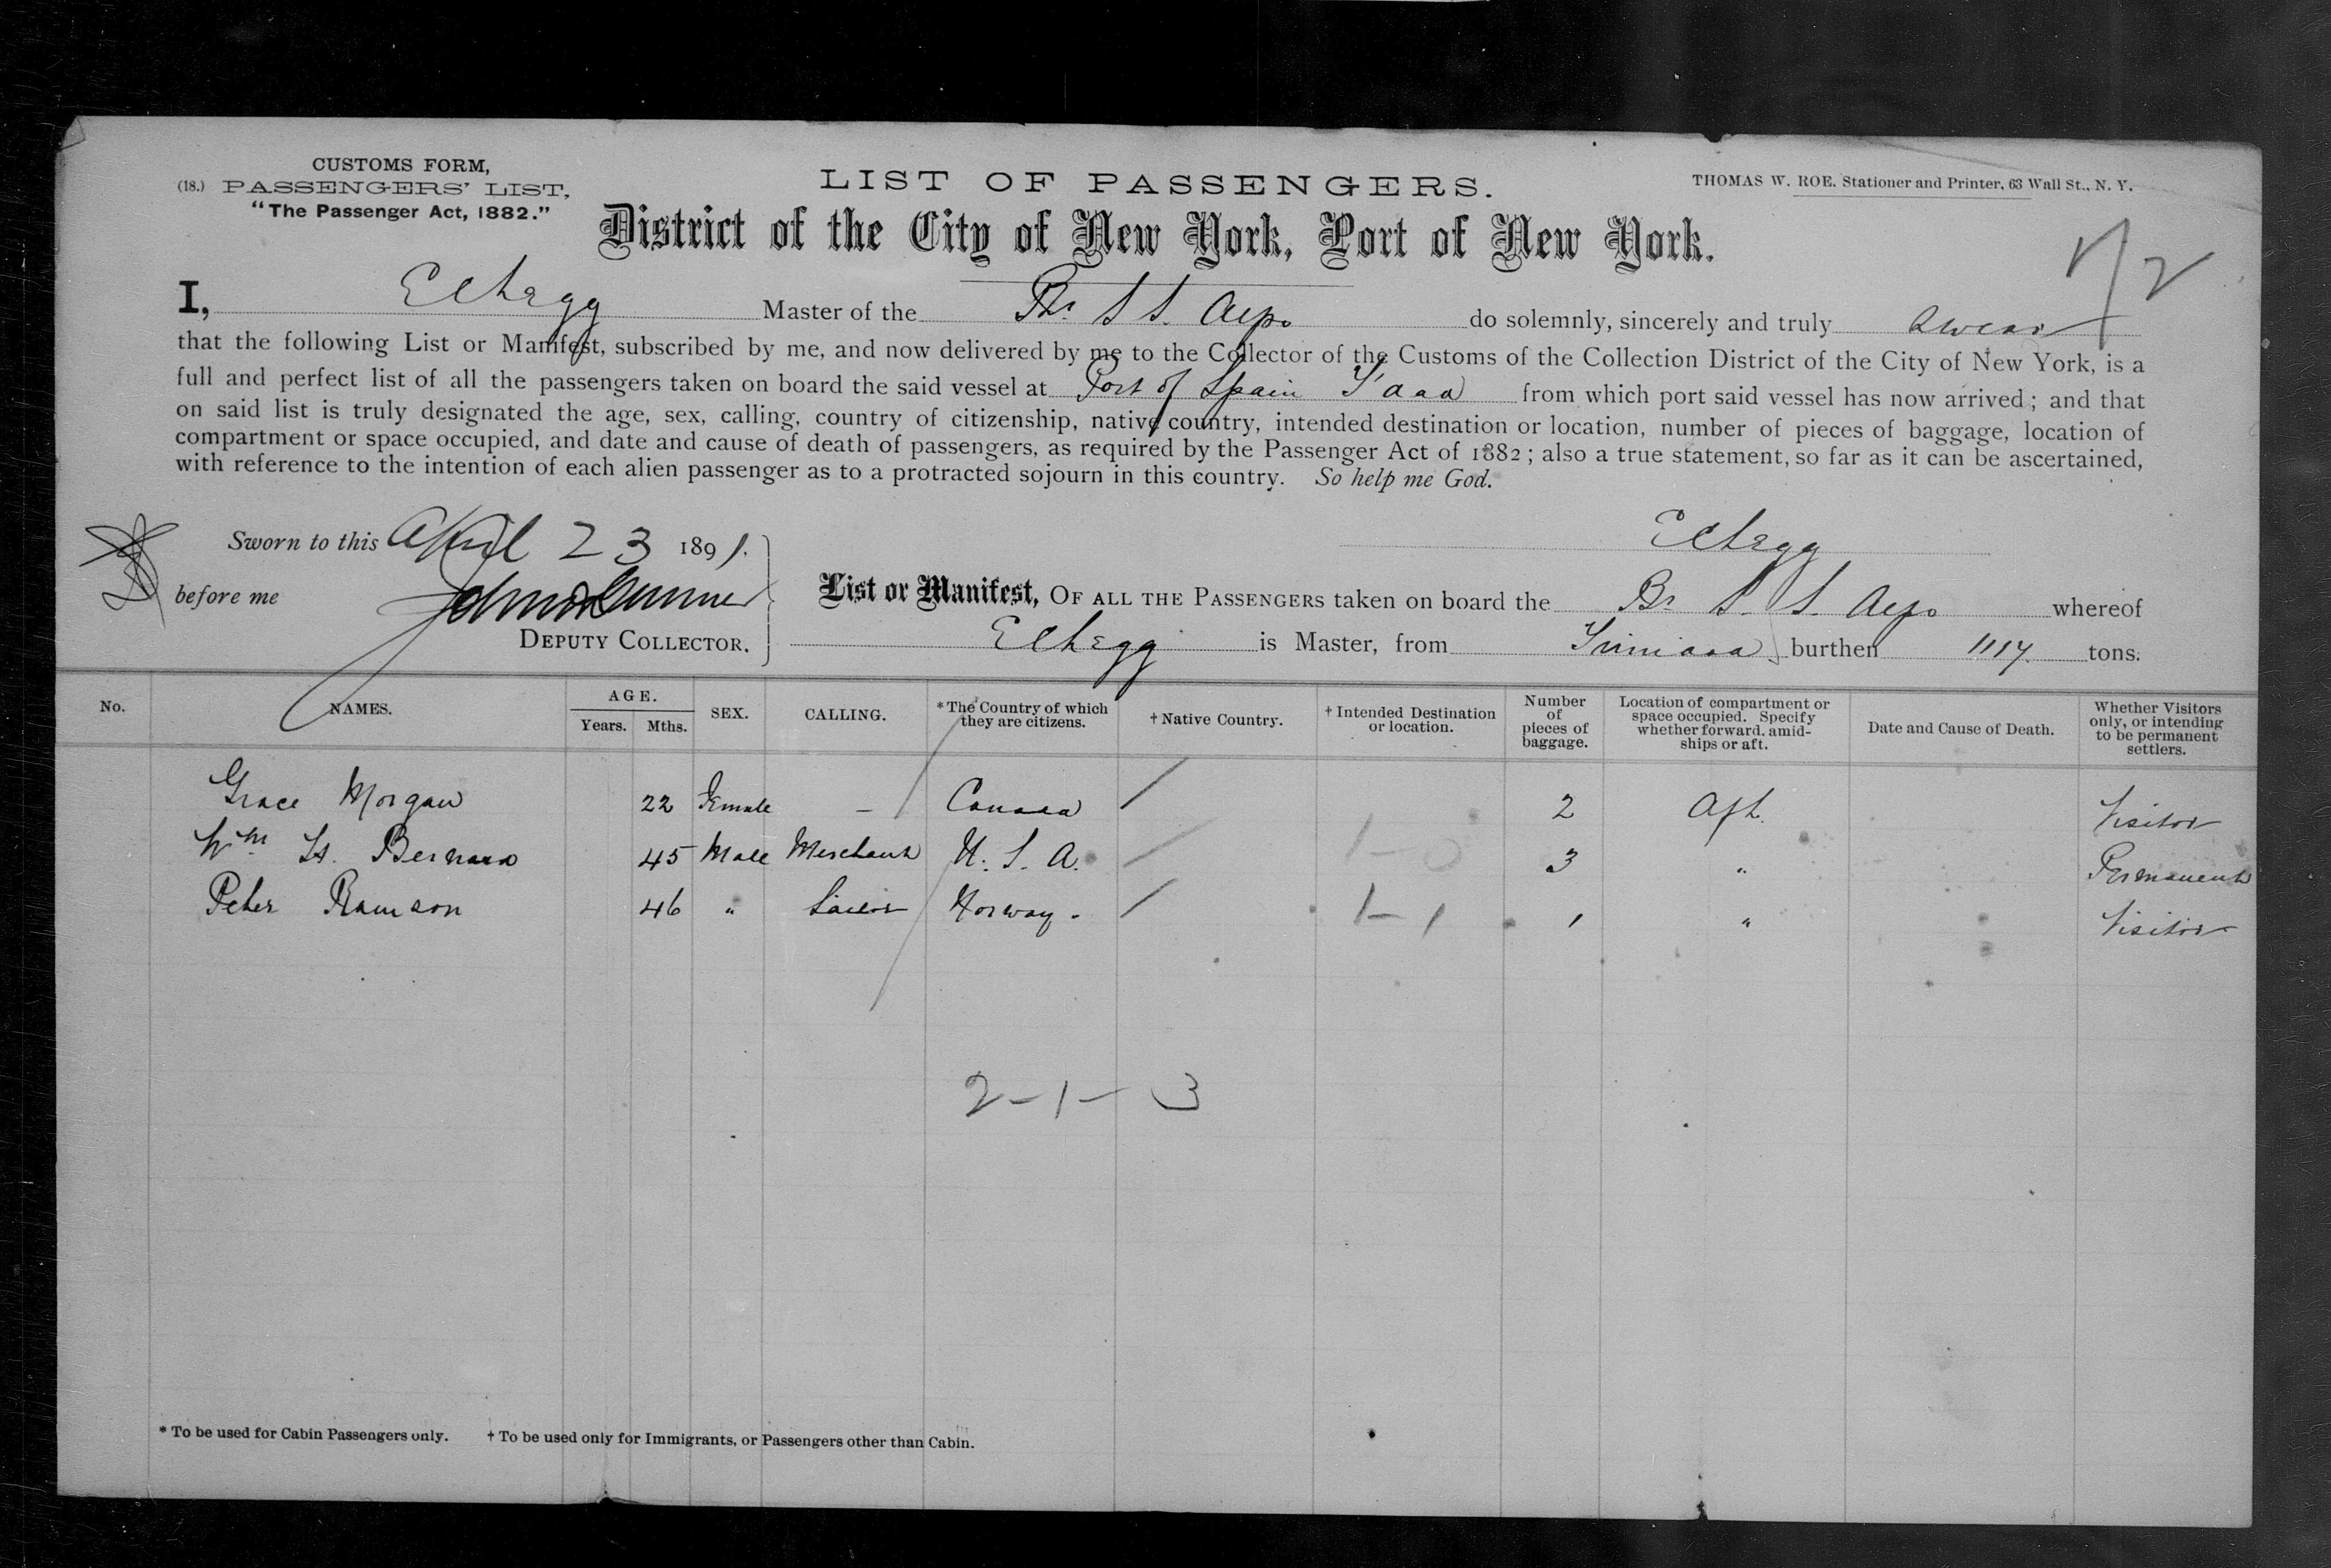 CUSTOMS FORM,
(18.) PASSENGERS' LIST,
"The Passenger Act, 1882."
LIST OF PASSENGERS.
THOMAS W. ROE, Stationer and Printer, 63 Wall St., N. Y.
District of the City of New York, Port of New York.
I, E C Legg Master of the Br. S S. Alps do solemnly, sincerely and truly swear
that the following List or Manifest, subscribed by me, and now delivered by me to the Collector of the Customs of the Collection District of the City of New York, is a
full and perfect list of all the passengers taken on board the said vessel at Port of Spain T'dad from which port said vessel has now arrived; and that
on said list is truly designated the age, sex, calling, country of citizenship, native country, intended destination or location, number of pieces of baggage, location of
compartment or space occupied, and date and cause of death of passengers, as required by the Passenger Act of 1882; also a true statement, so far as it can be ascertained,
with reference to the intention of each alien passenger as to a protracted sojourn in this country. So help me God.
Sworn to this April 23 1891.
E C Legg
before me
List or Manifest, OF ALL THE PASSENGERS taken on board the Br S. S. Alps whereof
DEPUTY COLLECTOR.
E C Legg is Master, from Trinidad burthen tons.
No. NAMES. AGE. Years. Mths. SEX. CALLING. *The Country of which they are citizens. †Native Country. †Intended Destination or location. Number of pieces of baggage. Location of compartment or space occupied. Specify whether forward, amid-ships or aft. Date and Cause of Death. Whether Visitors only, or intending to be permanent settlers.
Grace Morgan 22 Female – Canada / 2 Aft. Visitor
Wm. H. Bernard 45 Male Merchant U. S. A. / 1-0 3 " Permanent
Peter 46 " Sailor Norway. / 1-1 1 " Visitor
2-1-3
* To be used for Cabin Passengers only. † To be used only for Immigrants, or Passengers other than Cabin.